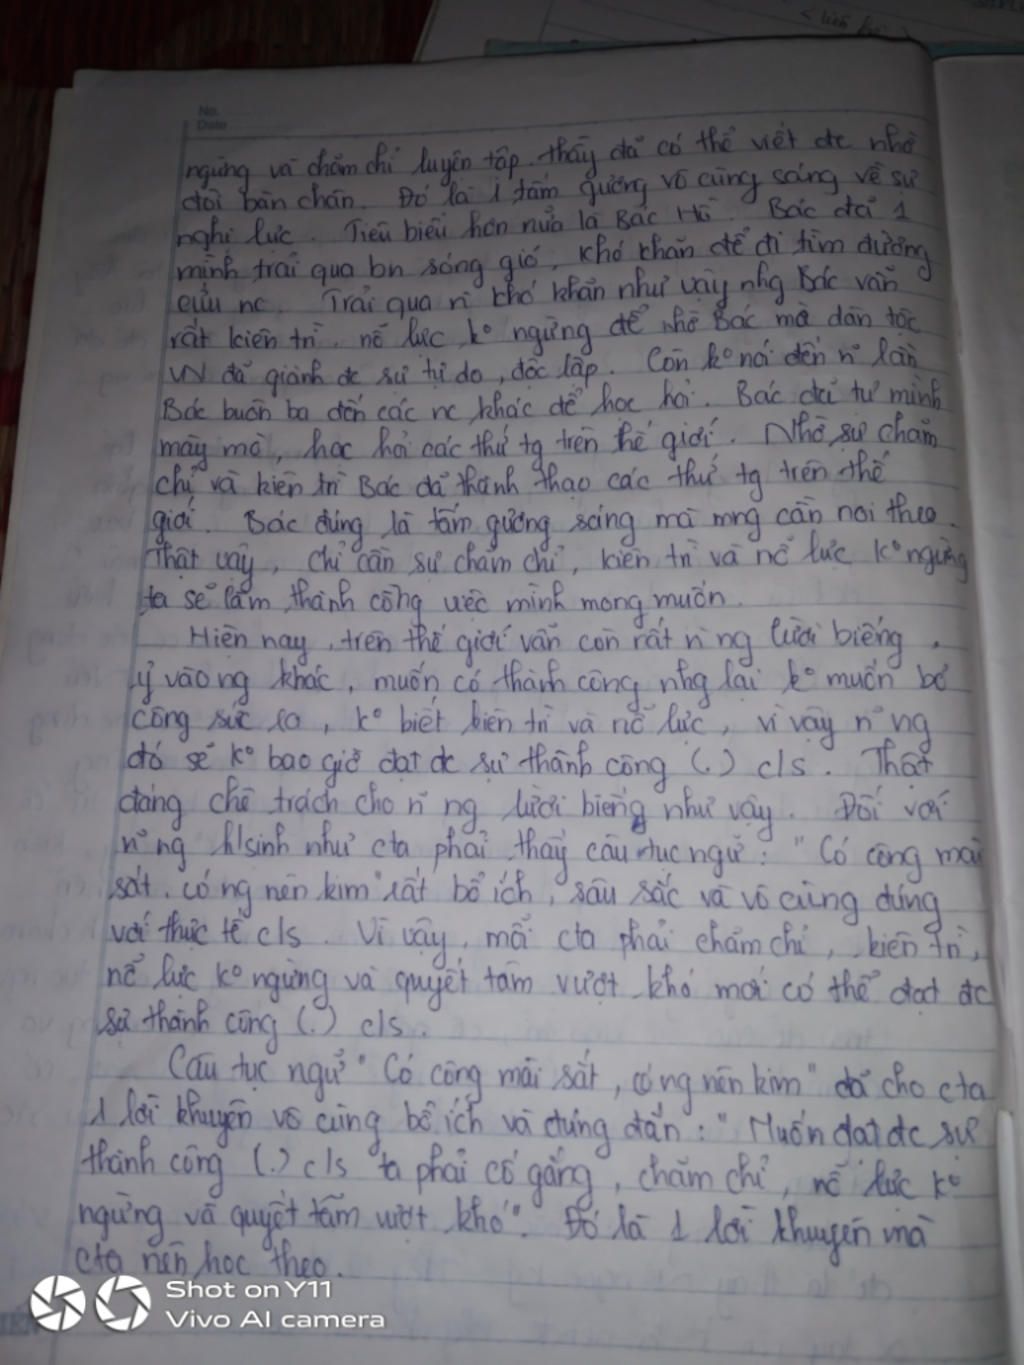 No.
Date
ngừng và chăm chỉ luyện tập, thầy đã có thể viết đc nhờ
đôi bàn chân. Đó là 1 tấm gương vô cùng sáng về sự
nghị lực. Tiêu biểu hơn nữa là Bác Hồ. Bác đã 1
mình trải qua bn sóng gió, khó khăn để đi tìm đường
cứu nc. Trải qua n~ khó khăn như vậy nhg Bác vẫn
rất kiên trì, nỗ lực k° ngừng để nhờ Bác mà dân tộc
VN đã giành đc sự tự do, độc lập. Còn k° nói đến n~ lần
Bác buôn ba đến các nc khác để học hỏi. Bác đã tự mình
mày mò, học hỏi các thứ tg trên thế giới. Nhờ sự chăm
chỉ và kiên trì Bác đã thành thạo các thứ tg trên thế
giới. Bác đúng là tấm gương sáng mà mng cần noi theo.
Thật vậy, chỉ cần sự chăm chỉ, kiên trì và nỗ lực k° ngừng
ta sẽ làm thành công việc mình mong muốn.
Hiện nay, trên thế giới vẫn còn rất n` ng lười biếng,
ỷ vào ng khác, muốn có thành công nhg lại k° muốn bỏ
công sức ra, k° biết kiên trì và nỗ lực, vì vậy n~ ng
đó sẽ k° bao giờ đạt đc sự thành công (.) c/s. Thật
đáng chê trách cho n~ ng lười biếng như vậy. Đối với
n~ng h/sinh như cta phải thấy câu tục ngữ: "Có công mài
sắt, có ng nên kim" rất bổ ích, sâu sắc và vô cùng đúng
với thực tế c/s. Vì vậy, mà cta phải chăm chỉ, kiên trì,
nỗ lực k° ngừng và quyết tâm vượt khó mới có thể đạt đc
sự thành công (.) c/s.
Câu tục ngữ "Có công mài sắt, có ng nên kim" đã cho cta
1 lời khuyên vô cùng bổ ích và đúng đắn: "Muốn đạt đc sự
thành công (.) c/s ta phải cố gắng, chăm chỉ, nỗ lực k°
ngừng và quyết tâm vượt khó". Đó là 1 lời khuyên mà
cta nên học theo.
Shot on Y11
Vivo AI camera